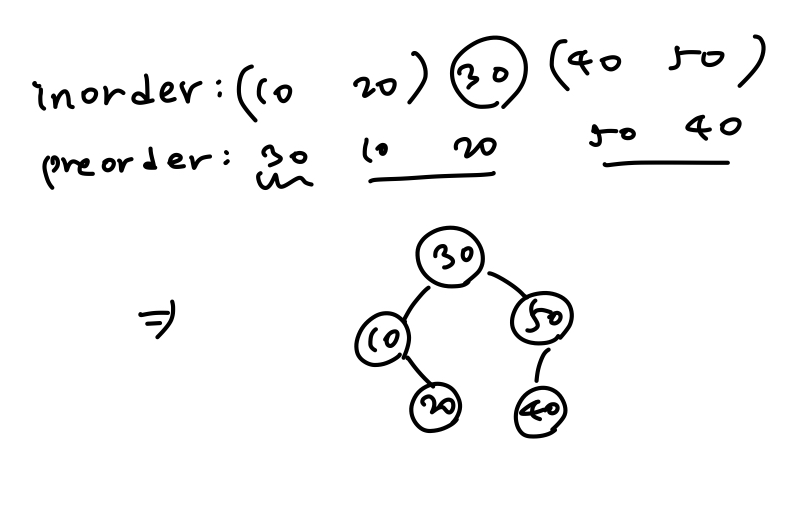 inorder: (10 20) 30 (40 50)
preorder: 30 10 20 50 40
⇒
30
10 50
20 40